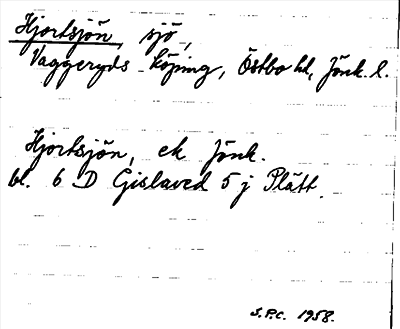 Hjortsjön, sjö,
Vaggeryds köping, Östbo hd, Jönk. l.
Hjortsjön, ek Jönk.
bl. 6 D Gislaved 5 j Plått.
S.P.C. 1958.